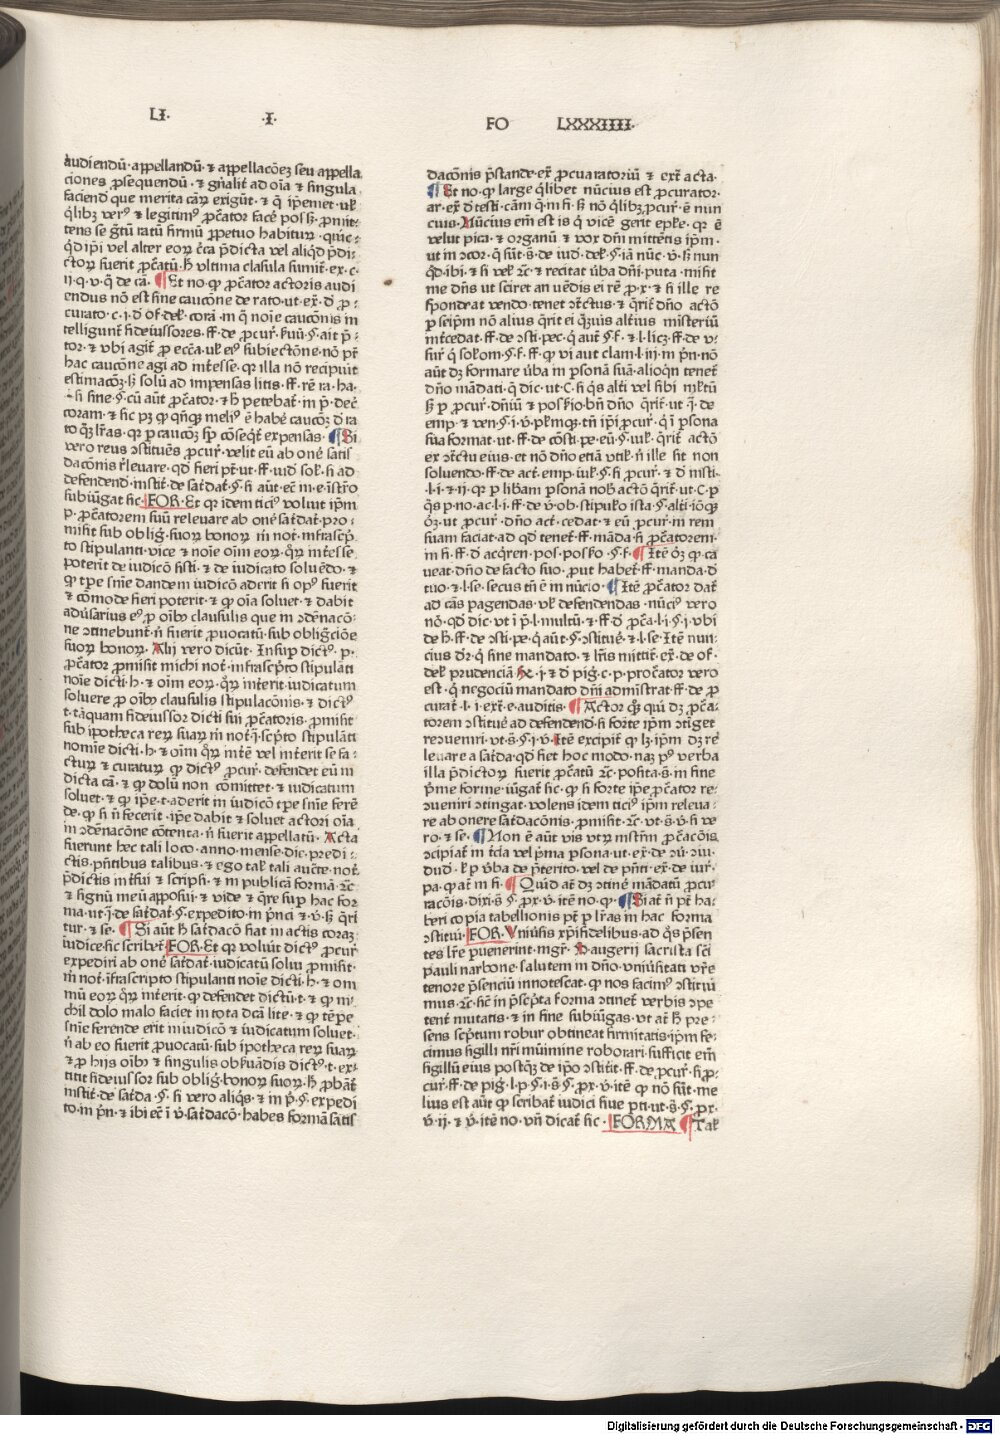 LI. .I. FO LXXXIIII.
audiendū. appellandū. ⁊ appellacōes seu appella
ciones ꝓsequendū. ⁊ gn̄alit̄ ad oīa ⁊ singula
faciend que merita caꝝ exigūt. ⁊ q̄ ip̄emet. ul̓
q̄libꝫ verꝰ ⁊ legitimꝰ ꝓc̄ator facē posꝫ. ꝓmit-
tens se g̃tū ratū firmū ꝑpetuo habituꝝ. quic-
qd ip̄i vel alter eoꝝ c̄ca p̄dicta vel aliqd p̄di-
ctoꝝ fuerit ꝓc̄atū. h̄ vltima clasula sumit̄. ex. c.
ii. q. v. q̄ de cā. Et no. ꝙ ꝓc̄ator actoris audi
endus nō est sine caucōne de rato. ut. ex̄. d̄ ꝓ-
curato. c. i. d̄ of. del̓. corā. in q̄ noīe caucōnis in
telligunt̄ fideiussores. ff. de ꝓcur̄. l. uū. §. ait p̄-
tor. ⁊ vbi agit̄ ꝓ ecc̄a. ul̓ eiꝰ subiectōne. nō pt̄
hac caucōne agi ad int̄esse. ꝙ illa nō recipiūt
estimacōꝫ. sꝫ solū ad impensas litis. ff. rē ra. ha.
l. si sine. §. cū aūt ꝓc̄ator. ⁊ h̄ petebat̄. in p̄. dec̄
coram. ⁊ sic pꝫ ꝙ qn̄qꝫ meliꝰ ē habē caucōꝫ d̄ ra
to qꝫ lr̄as. qꝛ ꝑ caucōꝫ sp̄ cōseqt̄ expensas. Si
vero reus ↄstituēs ꝓcur̄. velit eū ab onē satis
dacōnis r̄leuare. qd fieri pt̄. ut. ff. iud̄ sol̓. si ad
defendend̄. instit̄. de satdat̄. §. si aūt. ec̄ m. e. ist̄ro
subiūgat sic. FOR. Et qꝛ idem ticiꝰ voluit ip̄m
p. ꝓc̄atorem suū releuare ab onē satdat̄. pro-
misit sub oblig̃. suoꝝ bonoꝝ m̄ not̄. infrasc̄p̄
to stipulanti. vice ⁊ noīe oīm eoꝝ. qꝝ int̄esse
poterit de iudicō sisti. ⁊ de iudicato soluēdo. ⁊
ꝙ tꝑe sn̄ie dandem iudicō aderit si opꝰ fuerit
⁊ cōmode fieri poterit. ⁊ ꝙ oīa soluet. ⁊ dabit
adu̓sarius eꝰ ꝓ oībꝫ clausulis que in ↄdēnacō-
ne ↄtinebunt̄. n̄ fuerit ꝓuocatū. sub oblig̃ciōe
suoꝝ bonoꝝ. Alij vero dicūt. Insuꝑ dictꝰ. p.
ꝓc̄ator ꝓmisit michi not̄. infrasc̄pto stipulāti
noīe dicti. h. ⁊ oīm eoꝝ. qꝝ int̄erit. iudicatum
soluere ꝓ oībꝫ clausulis stipulacōnis. ⁊ dictꝰ
t. tāquam fideiussor dicti sui ꝓc̄atoris. ꝓmisit
sub ipotheca reꝝ suaꝝ m̄ not̄. ī. sc̄pto stipulāti
nomīe dicti. h. ⁊ oīm qꝝ int̄e vel int̄erit se fa-
ctuꝝ ⁊ curatuꝝ ꝙ dictꝰ ꝓcur̄. defendet eū in
dicta cā. ⁊ ꝙ dolū non cōmittet. ⁊ iudicatum
soluet. ⁊ ꝙ ip̄e. t. aderit in iudicō tꝑe sn̄ie ferē
de. ꝙ si n̄ fecerit. ip̄e dabit ⁊ soluet actori oīa
in ↄdēnacōne cōtenta. n̄ fuerit appellatū. Acta
fuerunt hec tali loco. anno. mense. die. predi-
ctis. p̄ntibus talibus. ⁊ ego tal̓. tali auct̄e. not̄.
p̄dictis int̄fui ⁊ scripsi. ⁊ in publicā formā. ⁊c̄
⁊ signū meū apposui. ⁊ vide ⁊ q̄re suꝑ hac for
ma. ut. ī. de satdat̄. §. expedito. in p̄nci. ⁊. v̄. sꝫ q̄ri
tur. ⁊ se. Si aūt h̄ satdacō fiat in actis coraꝫ
iudice. sic scribet̄. FOR. Et qꝛ voluit dictꝰ ꝓcur̄
expediri ab onē satdat̄. iudicatū solui ꝓmisit.
m̄ not̄. īfrascripto stipulanti noīe dicti. h. ⁊ om
mū eoꝝ qꝝ int̄erit. ꝙ defendet dictū. t. ⁊ ꝙ ni-
chil dolo malo faciet in tota dcā lite. ⁊ ꝙ tēꝑe
sn̄ie ferende erit in iudicō ⁊ iudicatum soluet.
n̄ ab eo fuerit ꝓuocatū. sub ipotheca reꝝ suaꝝ
⁊ ꝓ hijs oībꝫ ⁊ singulis obsuādis dictꝰ. t. ex-
titit fideiussor sub oblig̃. bonoꝝ suoꝝ. h̄ ꝓbāt̄
instit̄. de satda. §. si vero aliqs. ⁊ in p̄. §. expedi
to. in p̄n. ⁊ ibi ec̄ ī v̄. satdacō. habes formā satis
dacōnis p̄stande. ex̄ ꝓcuaratoriū ⁊ ext̄ acta.
Et no. ꝙ large q̄libet nūcius est ꝓcurator.
ar. ex̄. d̄ testi. cām. q̄. m. si. sꝫ nō q̄libꝫ ꝓcur̄. ē nun
cuis. Nūcius em̄ est is q̄ vicē gerit epl̓e. qꝛ ē
velut pica. ⁊ organū ⁊ vox dn̄i mittētis ip̄m.
ut in ↄcor. q̄ sūt. s̄. de iud̄. del̓. §. iā nūc. v̄. sꝫ nun
qd. ibi. ⁊ si vel̓ ⁊c̄ ⁊ recitat u̓ba dn̄i. puta. misit
me dn̄s ut sciret an uēdis ei rē ꝓ. x. ⁊ si ille re
spondeat vendo. tenet ↄt̄ctus. ⁊ q̄rit̄ dn̄o actō
ꝑ seip̄m nō alius q̄rit ei q̄ꝫuis alt̄ius misteriū
int̄cedat. ff. de ↄsti. pec. q̄ aūt. §. f. ⁊. l. licꝫ. ff. de v-
sur̄. q̄ solom. §. f. ff. ꝙ vi aut clam. l. iii. in p̄n. nō
aūt dꝫ formare u̓ba in ꝑsonā suā. alioqn tenet̄
dn̄o mādati. q̄ dic̄. ut. C. si qs alt̄i vel sibi
sꝫ ꝑ ꝓcur̄. dn̄iū ⁊ possio. bn̄ dn̄o q̄rit̄. ut. ī. de
emp. ⁊ ven. §. i. v̄. pl̓mqꝫ. tn̄ ip̄i ꝓcur̄. q̄ ī ꝑsona
sua format. ut. ff. de cōsti. pe. eū. §. iul̓. q̄rit̄ actō
ex ↄt̄ctu eius. et nō dn̄o etiā vtil̓. n̄ ille sit non
soluendo. ff. de act̄. emp. iul̓. §. si ꝓcur̄. ⁊ d̄ insti.
l. i. ⁊ ii. qꝛ ꝑ lib̄am ꝑsonā nob̄ actō q̄rit̄. ut. C. ꝑ
qs ꝑ. no. ac. l. i. ff. de v̄. ob. stipul̓o ista. §. alt̄i. iōqꝫ
oꝫ. ut ꝓcur̄. dn̄o act̄. cedat. ⁊ eū ꝓcur̄. in rem
suam faciat. ad qd tenet̄. ff. māda. si ꝓc̄atorem.
in fi. ff. d̄ acqren. pos. posso. §. f. Itē oꝫ ꝙ. ca
ueat. dn̄o de facto suo. ꝓut habet̄. ff. manda. d̄
tuo. ⁊. l. se. secus tn̄ ē in nūcio. Itē ꝓc̄ator dat̄
ad cās pagendas. ul̓ defendendas. nūciꝰ vero
nō. qd dic̄. ut. ī p̄. l. multū. ⁊. ff. d̄ ꝓc̄a. l. i. §. i. vbi
de h̄. ff. de ↄsti. pe. q̄ aūt. §. ↄstituē. ⁊. l. se. Itē nun-
cius dr̄. q̄ sine mandato. ⁊ lr̄is mittit̄. ex̄. de of.
del̓. prudenciā. §. i. ⁊ d̄ pig̃. c. p. procator vero
est. q̄ negociū mandato dn̄i admīstrat. ff. de ꝓ
curat̄. l. i. ext̄. e. auditis. Actor qꝫ qui dꝫ ꝓc̄a-
torem ↄstituē ad defendend. si forte ip̄m ↄtiget
reↄuenri. vt. s̄. §. i. v̄. Itē excipit̄ ꝙ lꝫ. ip̄m dꝫ re
leuare a satda. qd fiet hoc modo. naꝫ pꝰ verba
illa p̄dictoꝝ fuerit ꝓc̄atū ⁊c̄. posita. s̄. in fine
p̄me forme. iūgat̄ sic. ꝙ si forte ip̄e ꝓc̄ator re-
ↄueniri ↄtingat. volens idem ticiꝰ ip̄m releua-
re ab onere satdacōnis. ꝓmisit. ⁊c̄. vt. s̄. v̄. si ve
ro. ⁊ se. Non ē aūt vis vtꝝ mstr̄m ꝓc̄acōis
ↄcipiat̄ in t̄cia vel p̄ma ꝑsona. ut. ex̄. de ↄū. ↄiu.
dud̄. l. p u̓ba de p̄terito. vel de p̄nti. ex̄. de iur̄.
pa. ꝙ at̄ in fi. Quid at̄ dꝫ ↄtinē mādatū ꝓcu
racōis. dixi. s̄. §. ꝓx. v̄. itē no. ꝙ. Si at̄ n̄ pt̄ ha-
beri copia tabellionis pt̄ ꝑ lr̄as in hac forma
ↄstitui. FOR. Vniu̓sis xp̄ifidelibus. ad qs p̄sen
tes lr̄e puenerint. mgr̄. B. augerij sacrista sc̄i
pauli narbone. salutem in dn̄o. vniu̓sitati vr̄e
tenore p̄senciū innotescat. ꝙ nos facimꝰ ↄstitui
mus. ⁊c̄. sic̄ in p̄sc̄pta forma ↄtinet̄ verbis ↄpe
tent̄ mutatis. ⁊ in fine subiūgas. ut at̄ h̄ pre-
sens scp̄tum robur obtineat firmitatis. ip̄m fe-
cimus sigilli nr̄i mūimine roborari. sufficit em̄
sigillū eius postqꝫ de ip̄o ↄstitit. ff. de ꝓcur̄. si ꝓ-
cur̄. ff. de pig̃. l. p. §. i. s̄. §. ꝓx. v̄. itē ꝙ no. sūt. me
lius est aūt ꝙ scribat̄ iudici siue pti. ut. s̄. §. ꝓx.
v̄. ii. ⁊ v̄. itē no. vn̄ dicat̄ sic. FORMA Tal̓
Digitalisierung gefördert durch die Deutsche Forschungsgemeinschaft - DFG